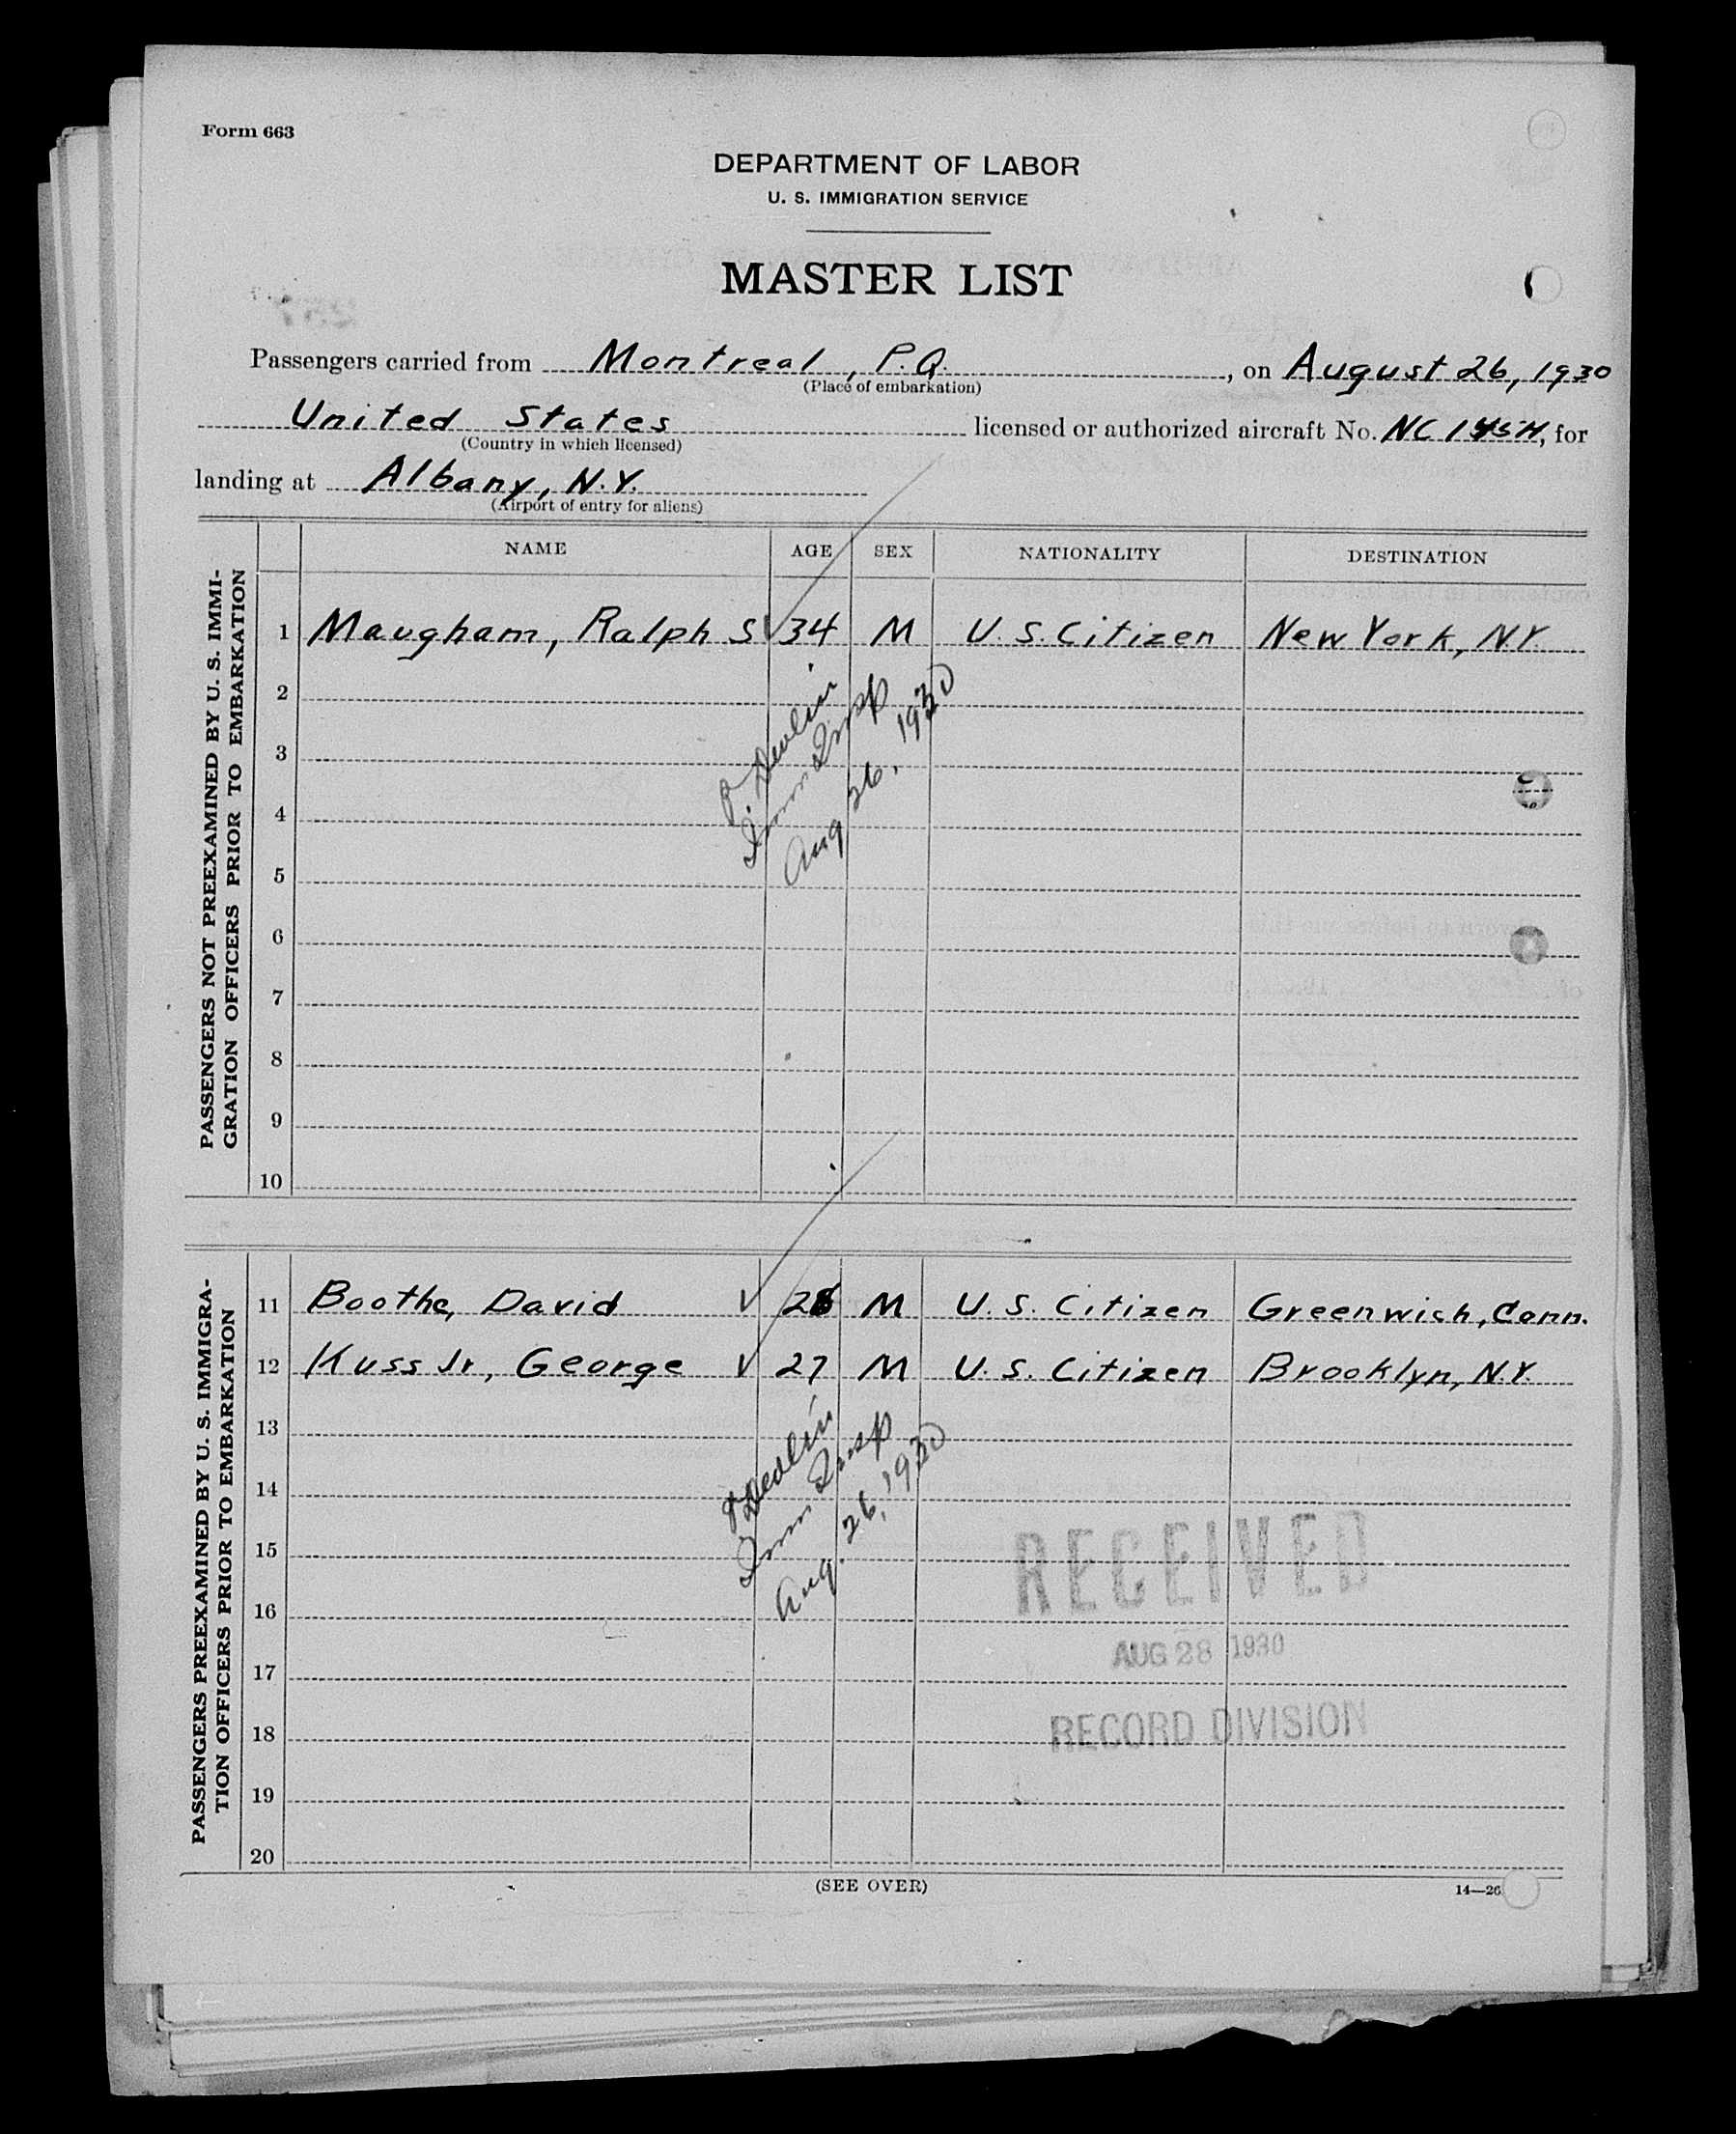 Form 663
DEPARTMENT OF LABOR
U. S. IMMIGRATION SERVICE
MASTER LIST
Passengers carried from Montreal, P.Q. , on August 26, 1930
(Place of embarkation)
United States licensed or authorized aircraft No. NC 145H, for
(Country in which licensed)
landing at Albany, N.Y.
(Airport of entry for aliens)
PASSENGERS NOT PREEXAMINED BY U. S. IMMI-
GRATION OFFICERS PRIOR TO EMBARKATION
NAME AGE SEX NATIONALITY DESTINATION
1 Maugham, Ralph S 34 M U.S. Citizen New York, N.Y.
2
3
4
5
6
7
8
9
10
P. Devlin
Imm Insp
Aug 26, 1930
PASSENGERS PREEXAMINED BY U. S. IMMIGRA-
TION OFFICERS PRIOR TO EMBARKATION
11 Boothe, David 28 M U.S. Citizen Greenwich, Conn.
12 Kuss Jr., George 27 M U.S. Citizen Brooklyn, N.Y.
13
14
15
16
17
18
19
20
P Devlin
Imm Insp
Aug. 26, 1930
RECEIVED
AUG 28 1930
RECORD DIVISION
(SEE OVER)
14—26